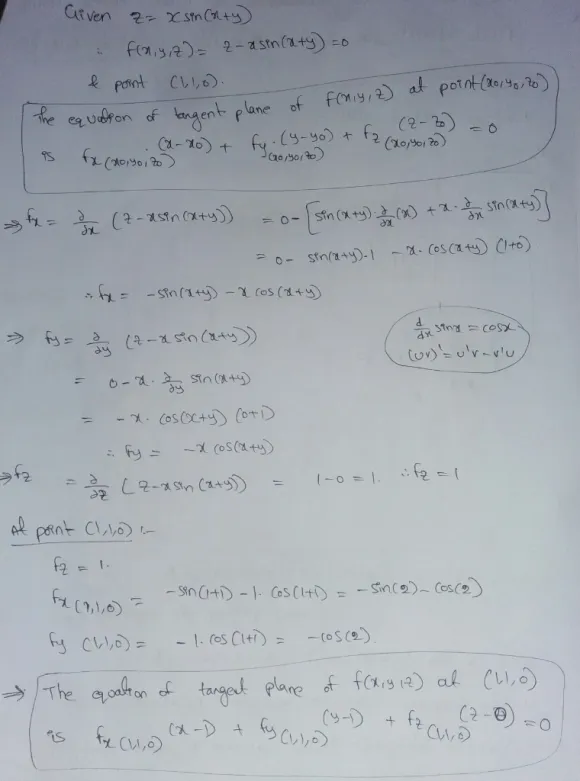 Given z = x sin(x+y)
∴ f(x,y,z) = z - x sin(x+y) = 0
& point (1,1,0).
The equation of tangent plane of f(x,y,z) at point (x0,y0,z0)
is fx(x0,y0,z0) · (x-x0) + fy(x0,y0,z0) · (y-y0) + fz(x0,y0,z0) (z-z0) = 0
⇒ fx = ∂/∂x (z - x sin(x+y)) = 0 - [sin(x+y) · ∂/∂x (x) + x · ∂/∂x sin(x+y)]
= 0 - sin(x+y) · 1 - x · cos(x+y) (1+0)
∴ fx = - sin(x+y) - x cos(x+y)
⇒ fy = ∂/∂y (z - x sin(x+y))
d/dx sinx = cosx
(uv)' = u'v - v'u
= 0 - x · ∂/∂y sin(x+y)
= - x · cos(x+y) (0+1)
∴ fy = - x cos(x+y)
⇒ fz = ∂/∂z (z - x sin(x+y)) = 1 - 0 = 1. ∴ fz = 1
At point (1,1,0) :-
fz = 1.
fx (1,1,0) = - sin(1+1) - 1 · cos(1+1) = - sin(2) - cos(2)
fy (1,1,0) = - 1 · cos(1+1) = - cos(2).
⇒ The equation of tangent plane of f(x,y,z) at (1,1,0)
is fx(1,1,0) (x-1) + fy(1,1,0) (y-1) + fz(1,1,0) (z-0) = 0